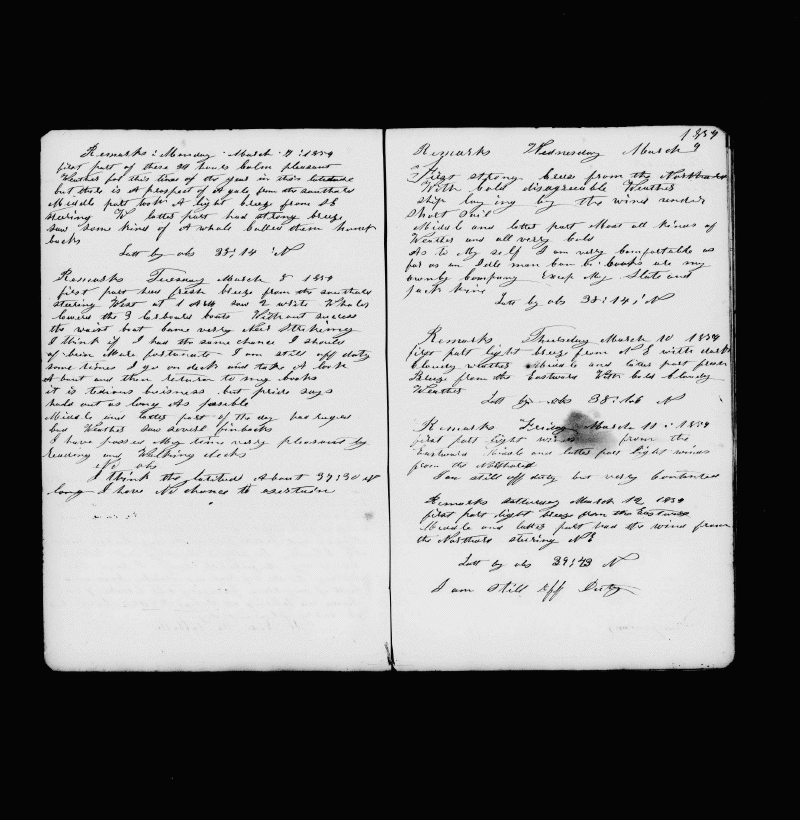 Remarks : Monday : March : 7 : 1859
first part of these 24 hours Calm pleasant
Weather for this time of the year in this latitude
but there is A prospect of A gale from the southard
Middle part took A light breeze from SE
steering W latter part had strong breeze
saw some kind of A whale called them hump
backs
Latt by obs 38:14 N
Remarks Tuesday March 8 1859
first part had fresh breeze from the southard
steering West at 1 saw 2 white Whales
lowerd the 3 Larboard boats Without success
the waist boat Came verry Near Strikeing
I think if I had the same chance I should
of bein More fortunate I am still off duty
some times I go on deck and take A look
A bout and then return to my books
it is tedious buisness but pride says
hold out as long As posible
Middle and latter part of the day had ruged
bad Weather saw severl finbacks
I have posses My time verry pleasant by
reading and Walking decks
No obs
I think the latitud About 37:30 N
long I have No chance to
1859
Remarks Wednesday March 9
First strong breeze from the Northard
With Cold disagreeable Weather
ship lay ing by the wind under
short sail
Middle and latter part Most all kinds of
Weather and all verry Cold
As to My self I am very Comfortable as
far as an Idle man Can be books are my
ownly Company Excep My Slate and
Jack knive
Latt by obs 38:14 : N
Remarks Thursday March 10 1859
first part light breeze from N E with dark
Cloudy weather Middle and later part fresh
Breeze from the Eastward With Cold Cloudy
Weather
Latt by obs 38: N
Remarks Friday March 11 : 1859
first part light winds from the
Eastward Middle and latter part light winds
from the Northard
I am still off duty but very Contented
Remarks Satterday March 12 1859
first part light breeze from the Eastward
Middle and latter part had the wind from
the Northard steering N E
Latt by obs 39:43 N
I am still off Duty